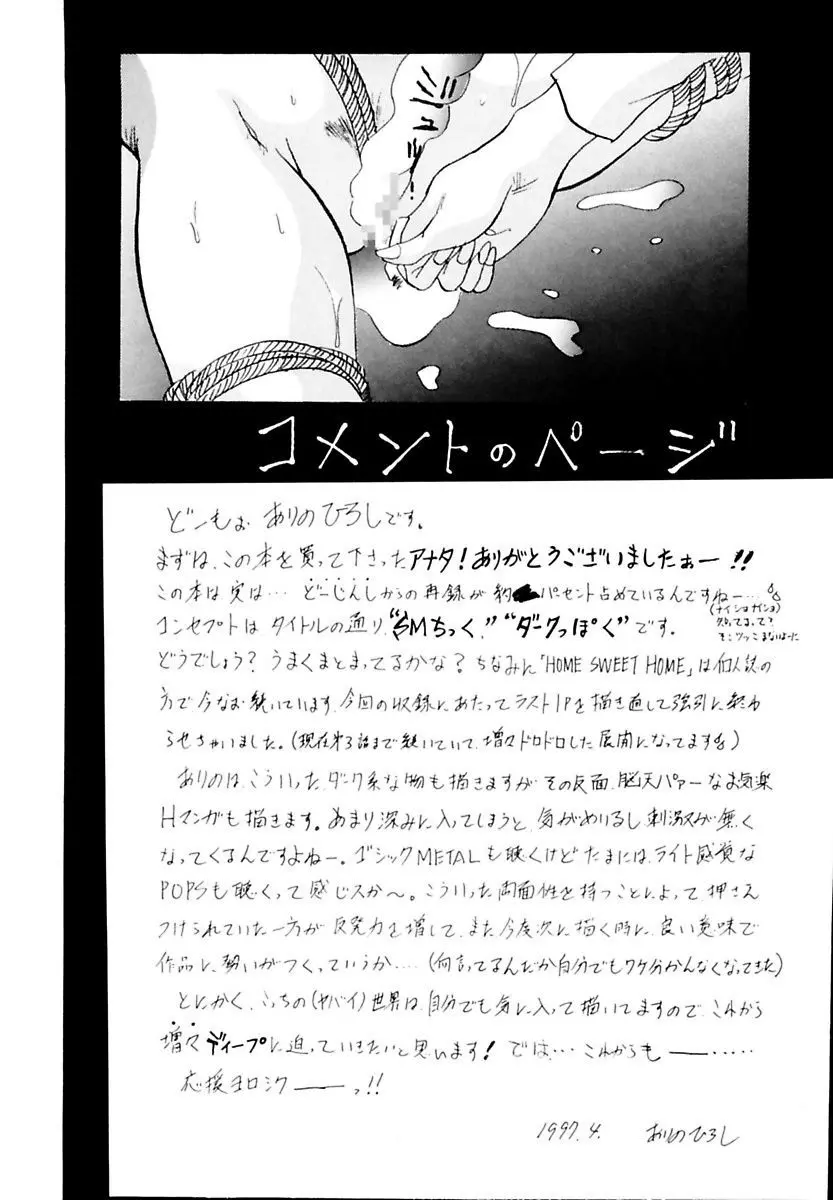 コメントのページ
どーもぉ ありのひろしです。
まずは、この本を買って下さったアナタ！ありがとうございましたぁー！！
この本は実は… どーじんしからの再録が約 パーセント占めているんですねー…
(ナイショナイショ)
コンセプトは タイトルの通り、“SMちっく” “ダークっぽく”です。
どうでしょう？うまくまとまってるかな？ちなみに「HOME SWEET HOME」は個人誌の
方で今なお続いています。今回の収録にあたってラスト1Pを描き直して強引に終わ
らせちゃいました。(現在第3話まで続いていて、増々ドロドロした展開になってます)
ありのは、こういったダーク系な物も描きますが その反面、脳天パァーなお気楽
Hマンガも描きます。あまり深みに入ってしまうと、気がめいるし刺激が無く
なってくるんですよねー。ゴシックMETALも聴くけど たまには、ライト感覚な
POPSも聴くって感じスか〜。こういった両面性を持つことによって 押さえ
つけられていた一方が 反発力を増して、また今度次に描く時に、良い意味で
作品に、勢いがつくっていうか…‥(何言ってるんだか自分でもワケ分かんなくなってきた)
とにかく、こっちの(ヤバイ)世界は、自分でも気に入って描いてますので、これから
増々ディープに迫っていきたいと思います！では… これからも——……
応援ヨロシク——っ!!
1997.4. ありのひろし